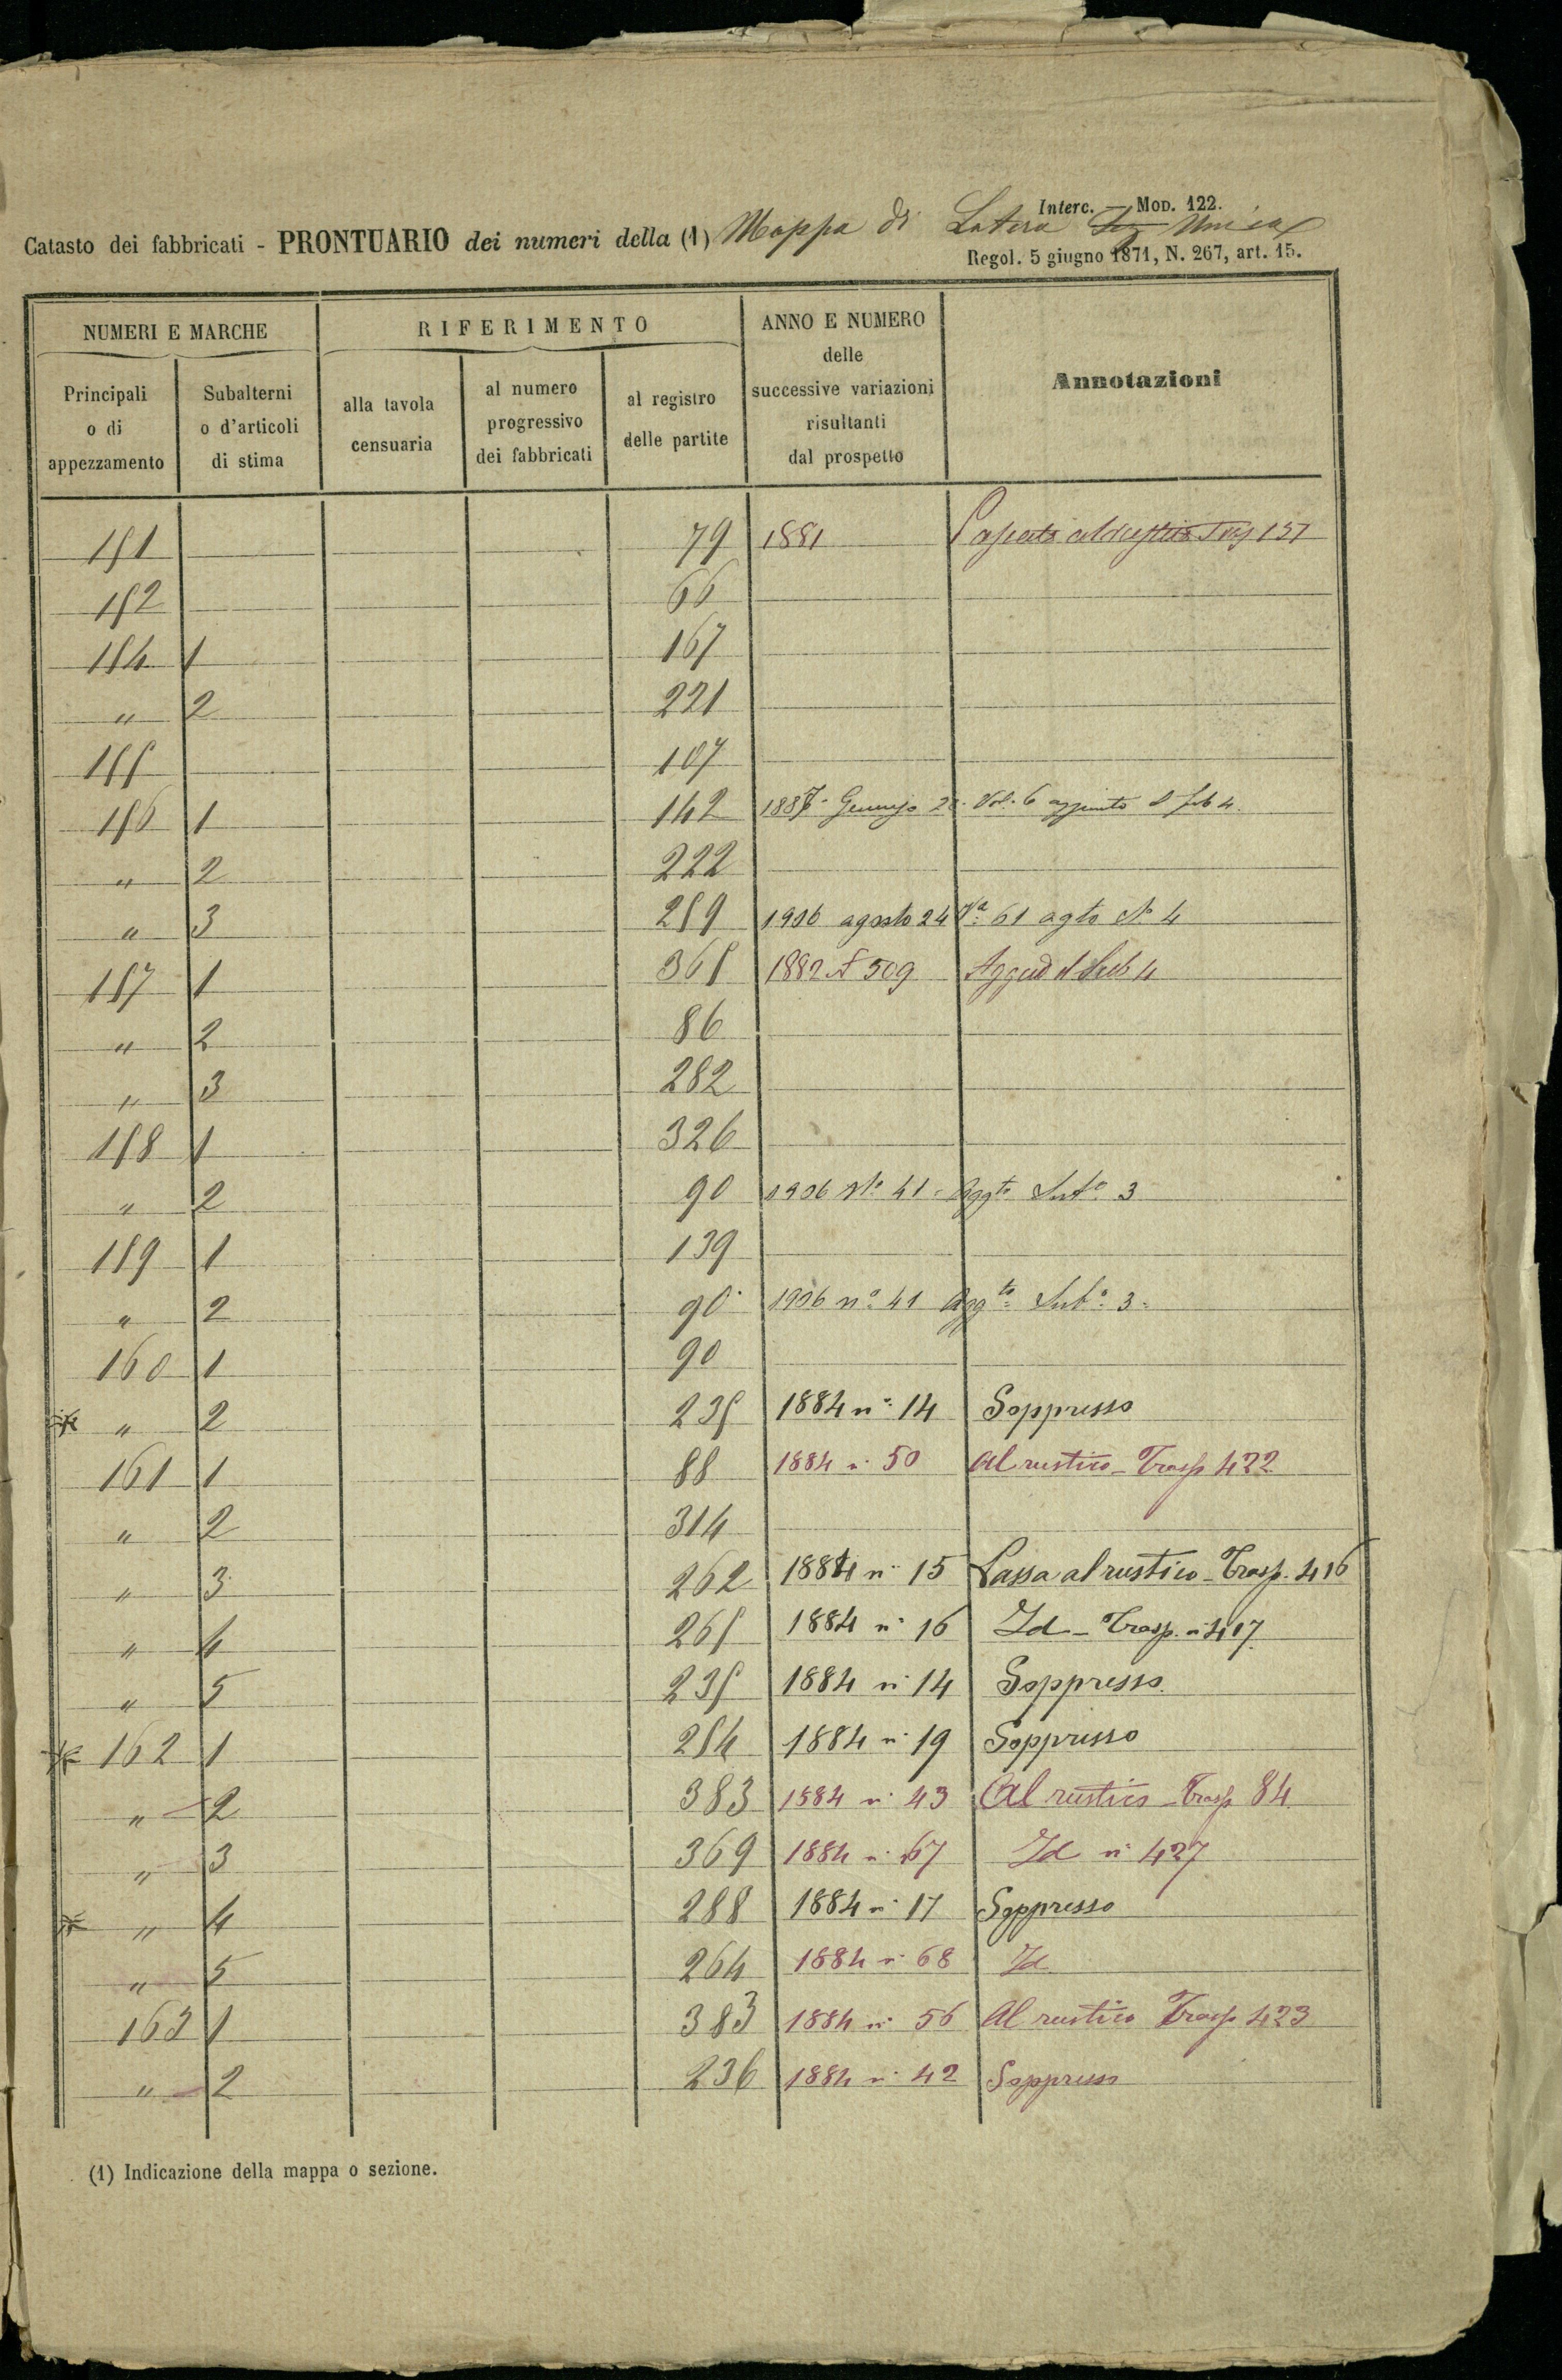 Interc. — Mod. 122.
Catasto dei fabbricati - PRONTUARIO dei numeri della (1) Mappa di Latera Sez Unica
Regol. 5 giugno 1871, N. 267, art. 15.
NUMERI E MARCHE
RIFERIMENTO
ANNO E NUMERO delle successive variazioni risultanti dal prospetto
Annotazioni
Principali o di appezzamento
Subalterni o d'articoli di stima
alla tavola censuaria
al numero progressivo dei fabbricati
al registro delle partite
151 79 1881 157
152 66
154 1 167
" 2 221
155 107
156 1 142 1887 Gennajo Vol. 6 aggiunto il sub 4.
" 2 222
" 3 259 1906 agosto 24 Va 61 agto N 4
157 1 365 1882 N 509 il Sub 4
" 2 86
" 3 282
158 1 326
" 2 90 1906 No 41 Aggto Subo 3
159 1 139
" 2 90 1906 no 41 Aggto Subo 3
160 1 90
" 2 235 1884 n° 14 Soppresso
161 1 88 1884 n° 50 Al rustico - Trasp 422
" 2 314
" 3 262 1884 n° 15 Passa al rustico - Trasp. 416
" 4 265 1884 n° 16 Id - Trasp. n° 417
" 5 235 1884 n° 14 Soppresso.
162 1 254 1884 n° 19 Soppresso
" 2 383 1884 n° 43 Al rustico - Trasp 84
" 3 369 1884 n° 67 Id n° 427
" 4 288 1884 n° 17 Soppresso
" 5 264 1884 n° 68 Id
163 1 383 1884 n° 56 Al rustico Trasp 423
" 2 236 1884 n° 42 Soppresso
(1) Indicazione della mappa o sezione.